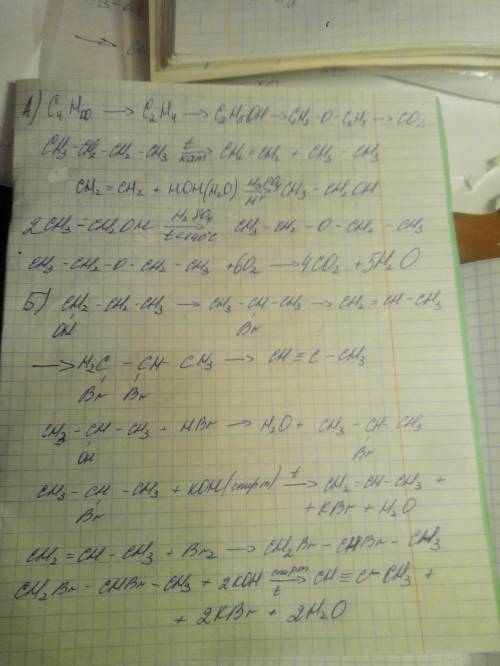 А) C4H10 → C2H4 → C2H5OH → C2H5-O-C2H5 → CO2
CH3-CH2-CH2-CH3 t→кат CH2=CH2 + CH3-CH3
CH2=CH2 + HOH(H2O) H3PO4→H+ CH3-CH2OH
2CH3-CH2OH H2SO4→t<140°C CH3-CH2-O-CH2-CH3
CH3-CH2-O-CH2-CH3 +6O2 → 4CO2 +5H2O
Б) CH2-CH2-CH3 → CH3-CH-CH3 → CH2=CH-CH3
OH Br
→ H2C - CH CH3 → CH≡C-CH3
Br Br
CH3-CH-CH3 + HBr → H2O + CH3-CH-CH3
OH Br
CH3-CH-CH3 + KOH(спирт) t→ CH2=CH-CH3 +
Br + KBr + H2O
CH2=CH-CH3 + Br2 → CH2Br-CHBr-CH3
CH2Br-CHBr-CH3 + 2KOH спирт→t CH≡C-CH3 +
+ 2KBr + 2H2O